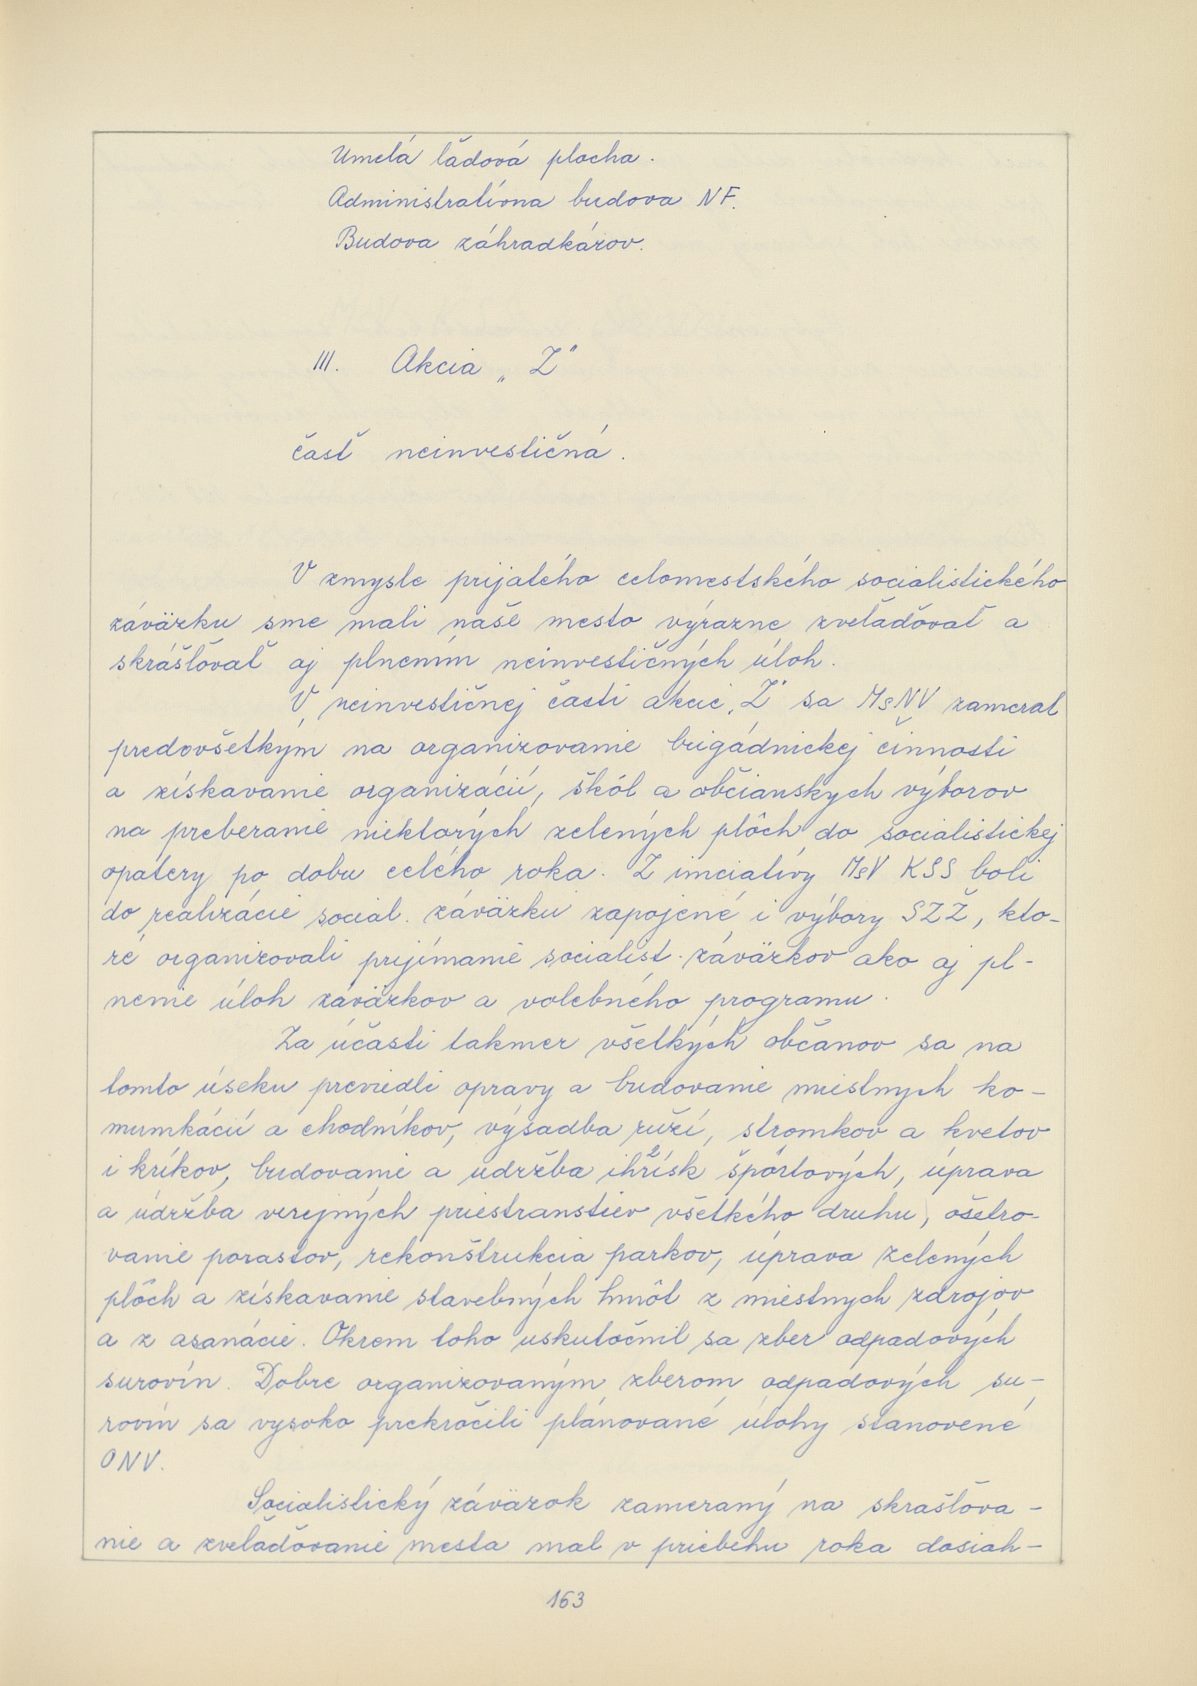 Umelá ľadová plocha.
Administratívna budova NF.
Budova záhradkárov.
III. Akcia „Z"
časť neinvestičná.
V zmysle prijatého celomestského socialistického
záväzku sme mali naše mesto výrazne zveľaďovať a
skrášľovať aj plnením neinvestičných úloh.
V neinvestičnej časti akcie „Z" sa MsNV zameral
predovšetkým na organizovanie brigádnickej činnosti
a získavanie organizácií, škôl a občianskych výborov
na preberanie niektorých zelených plôch do socialistickej
opatery po dobu celého roka. Z iniciatívy MsV KSS boli
do realizácie social. záväzku zapojené i výbory SZŽ, kto-
ré organizovali prijímanie socialist. záväzkov ako aj pl-
nenie úloh záväzkov a volebného programu.
Za účasti takmer všetkých občanov sa na
tomto úseku previedli opravy a budovanie miestnych ko-
munikácií a chodníkov, výsadba ruží, stromkov a kvetov
i kríkov, budovanie a udržba ihrísk špórtových, úprava
a údržba verejných priestranstiev všetkého druhu, ošetro-
vanie porastov, rekonštrukcia parkov, úprava zelených
plôch a získavanie stavebných hmôt z miestnych zdrojov
a z asanácie. Okrem toho uskutočnil sa zber odpadových
surovín. Dobre organizovaným zberom odpadových su-
rovín sa vysoko prekročili plánované úlohy stanovené
ONV.
Socialistický záväzok zameraný na skrašľova-
nie a zveľaďovanie mesta mal v priebehu roka dosiah-
163